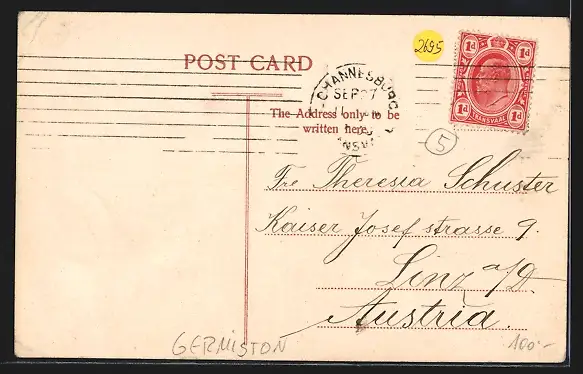 2695
POST CARD
CHANNESBURG
SEP 27
ANSVA
1d 1d
1d TRANSVAAL 1d
The Address only to be
written here.
5
Fre Theresia Schuster
Kaiser Josef strasse 9.
Linz a/D
Austria.
GERMISTON
100.-